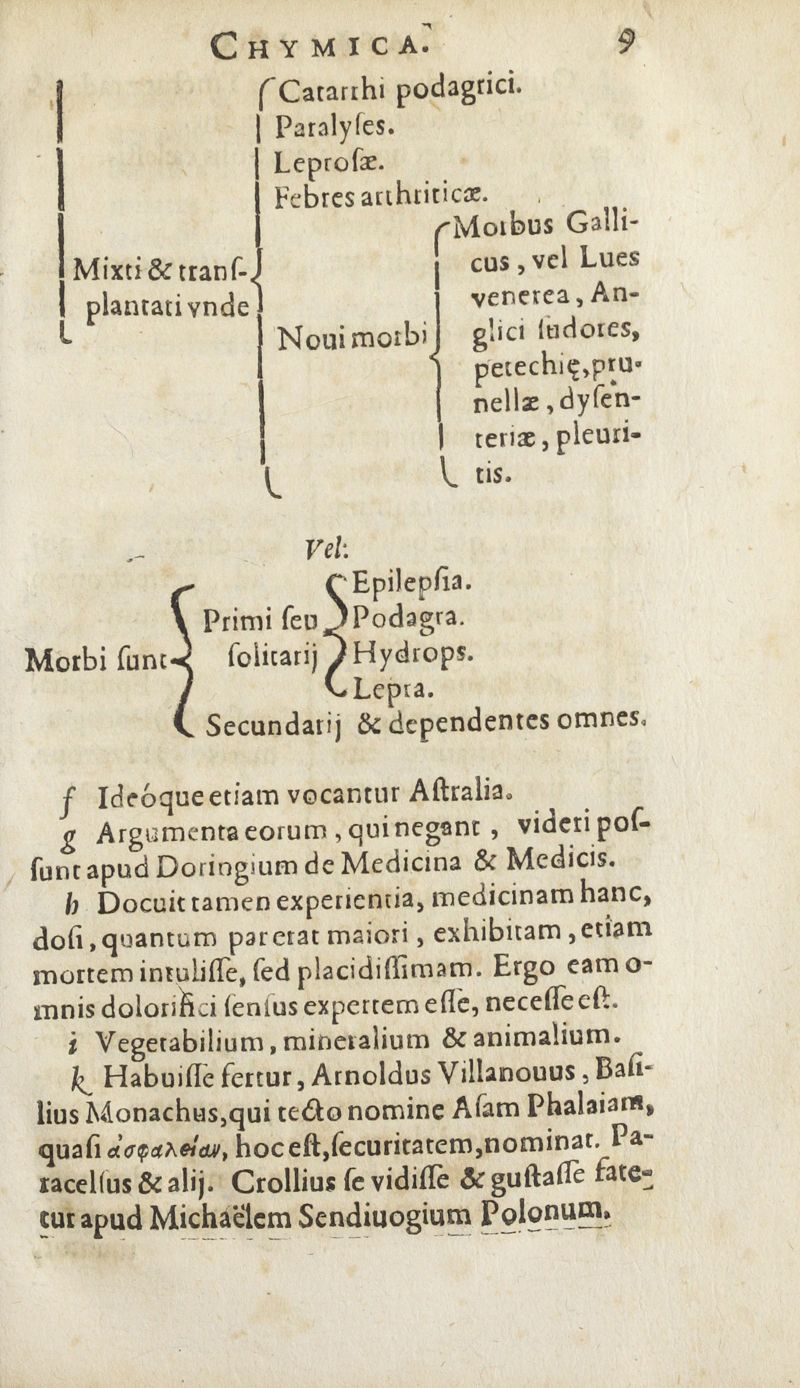 CHYMICA. 9
Catarrhi podagrici.
Paralyſes.
Leproſæ.
Febres arthriticæ.
Morbus Galli-
Mixti & tranſ-
cus, vel Lues
plantati vnde
venerea, An-
Noui morbi
glici ſudores,
petechię, pru-
nellæ, dyſen-
teriæ, pleuri-
tis.
Vel:
Epilepſia.
Primi ſeu
Podagra.
Morbi ſunt
ſolitarij
Hydrops.
Lepra.
Secundarij & dependentes omnes.
f Ideóque etiam vocantur Aſtralia.
g Argumenta eorum, qui negant, videri poſ-
ſunt apud Doringium de Medicina & Medicis.
h Docuit tamen experientia, medicinam hanc,
doſi, quantum par erat maiori, exhibitam, etiam
mortem intuliſſe, ſed placidiſſimam. Ergo eam o-
mnis dolorifici ſenſus expertem eſſe, neceſſe eſt.
i Vegetabilium, mineralium & animalium.
k Habuiſſe fertur, Arnoldus Villanouus, Baſi-
lius Monachus, qui tecto nomine Aſam Phalaiam,
quaſi ἀσφαλείαν, hoc eſt, ſecuritatem, nominat. Pa-
racelſus & alij. Crollius ſe vidiſſe & guſtaſſe fate-
tur apud Michaëlem Sendiuogium Polonum.